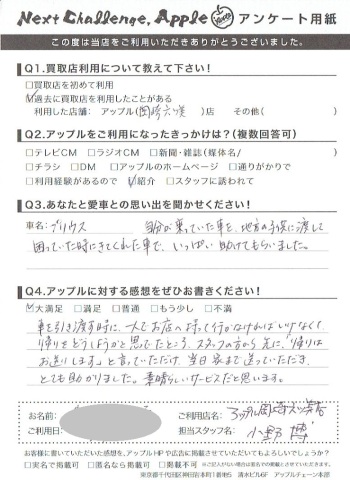 Next Challenge, Apple アンケート用紙
この度は当店をご利用いただきありがとうございました。
Q1.買取店利用について教えて下さい!
□買取店を初めて利用
☑過去に買取店を利用したことがある
利用した店舗: アップル(岡崎六ツ美)店 その他( )
Q2.アップルをご利用になったきっかけは?(複数回答可)
□テレビCM □ラジオCM □新聞・雑誌(媒体名/ )
□チラシ □DM □アップルのホームページ □通りがかりで
□利用経験があるので ☑紹介 □スタッフに誘われて
Q3.あなたと愛車との思い出を聞かせください!
車名: プリウス 自分が乗っていた車を、地方の子供に渡して
困っていた時にきてくれた車で、いっぱい助けてもらいました。
Q4.アップルに対する感想をぜひお書きください!
☑大満足 □満足 □普通 □もう少し □不満
車を引き渡す時に、一人でお店へ持って行かなければいけなくて
帰りをどうしようかと思ってたところ、スタッフの方から先に、「帰りは
お送りします」と言っていただけ、当日家まで送っていただき、
とても助かりました。素晴らしいサービスだと思います。
お名前: ご利用店名: アップル岡崎六ツ美店
ご利用日: 担当スタッフ名: 小野 博
お客様に書いていただいた感想を、アップルHPや広告に掲載させていただいてもよろしいでしょうか?
□実名で掲載可 □匿名なら掲載可 □掲載不可 ※ご記入がない場合は匿名での掲載とさせていただきます。
東京都千代田区神田岩本町1番地5 清水ビル6F アップルチェーン本部